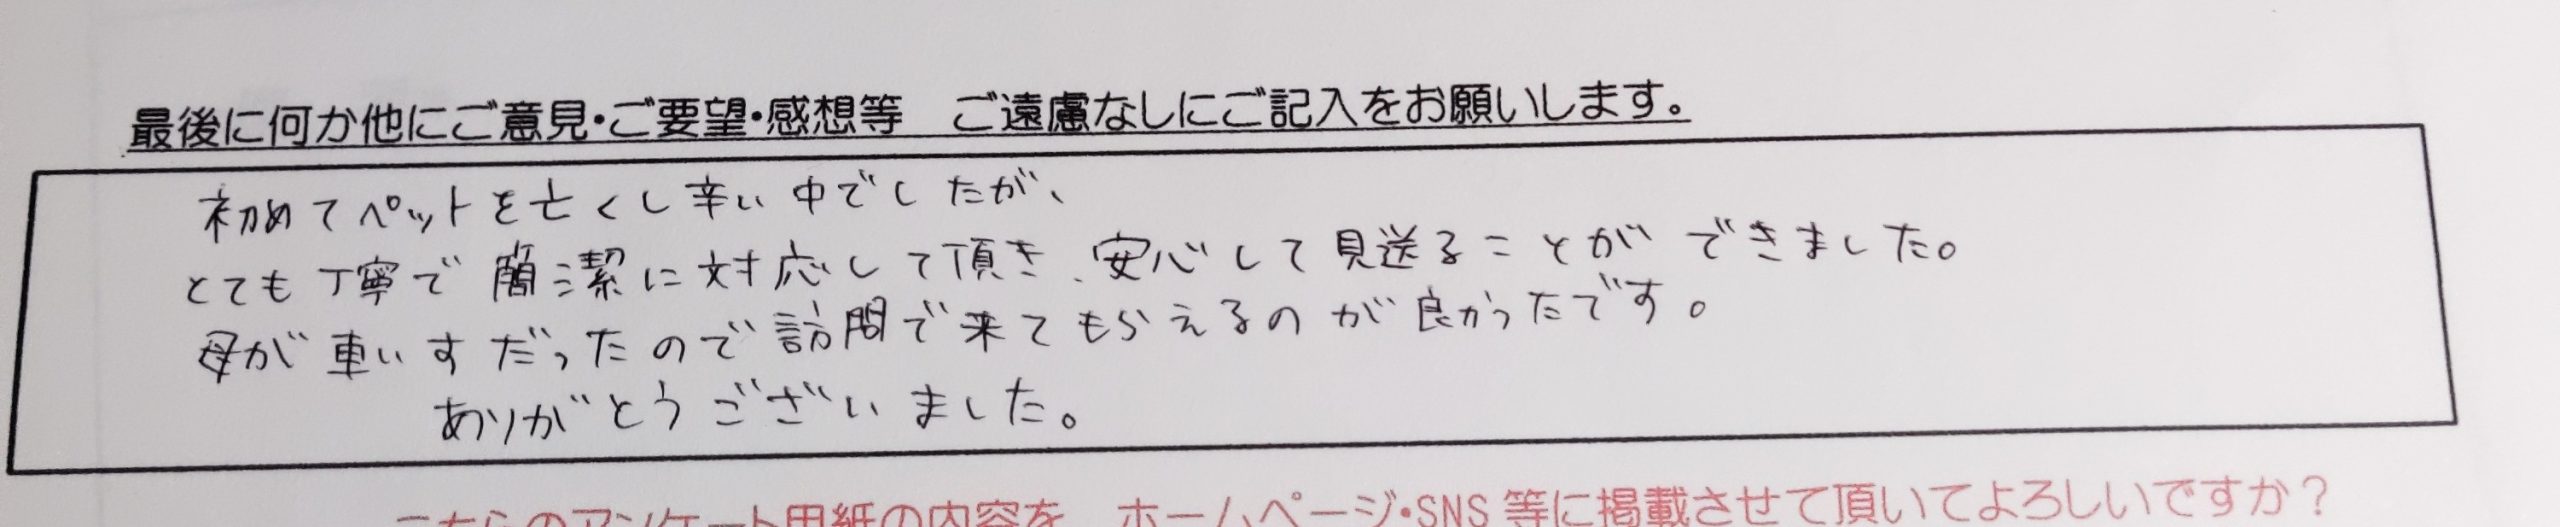 最後に何か他にご意見・ご要望・感想等　ご遠慮なしにご記入をお願いします。
初めてペットを亡くし辛い中でしたが、
とても丁寧で簡潔に対応して頂き、安心して見送ることができました。
母が車いすだったので訪問で来てもらえるのが良かったです。
ありがとうございました。
こちらのアンケート用紙の内容を　ホームページ・SNS等に掲載させて頂いてよろしいですか？